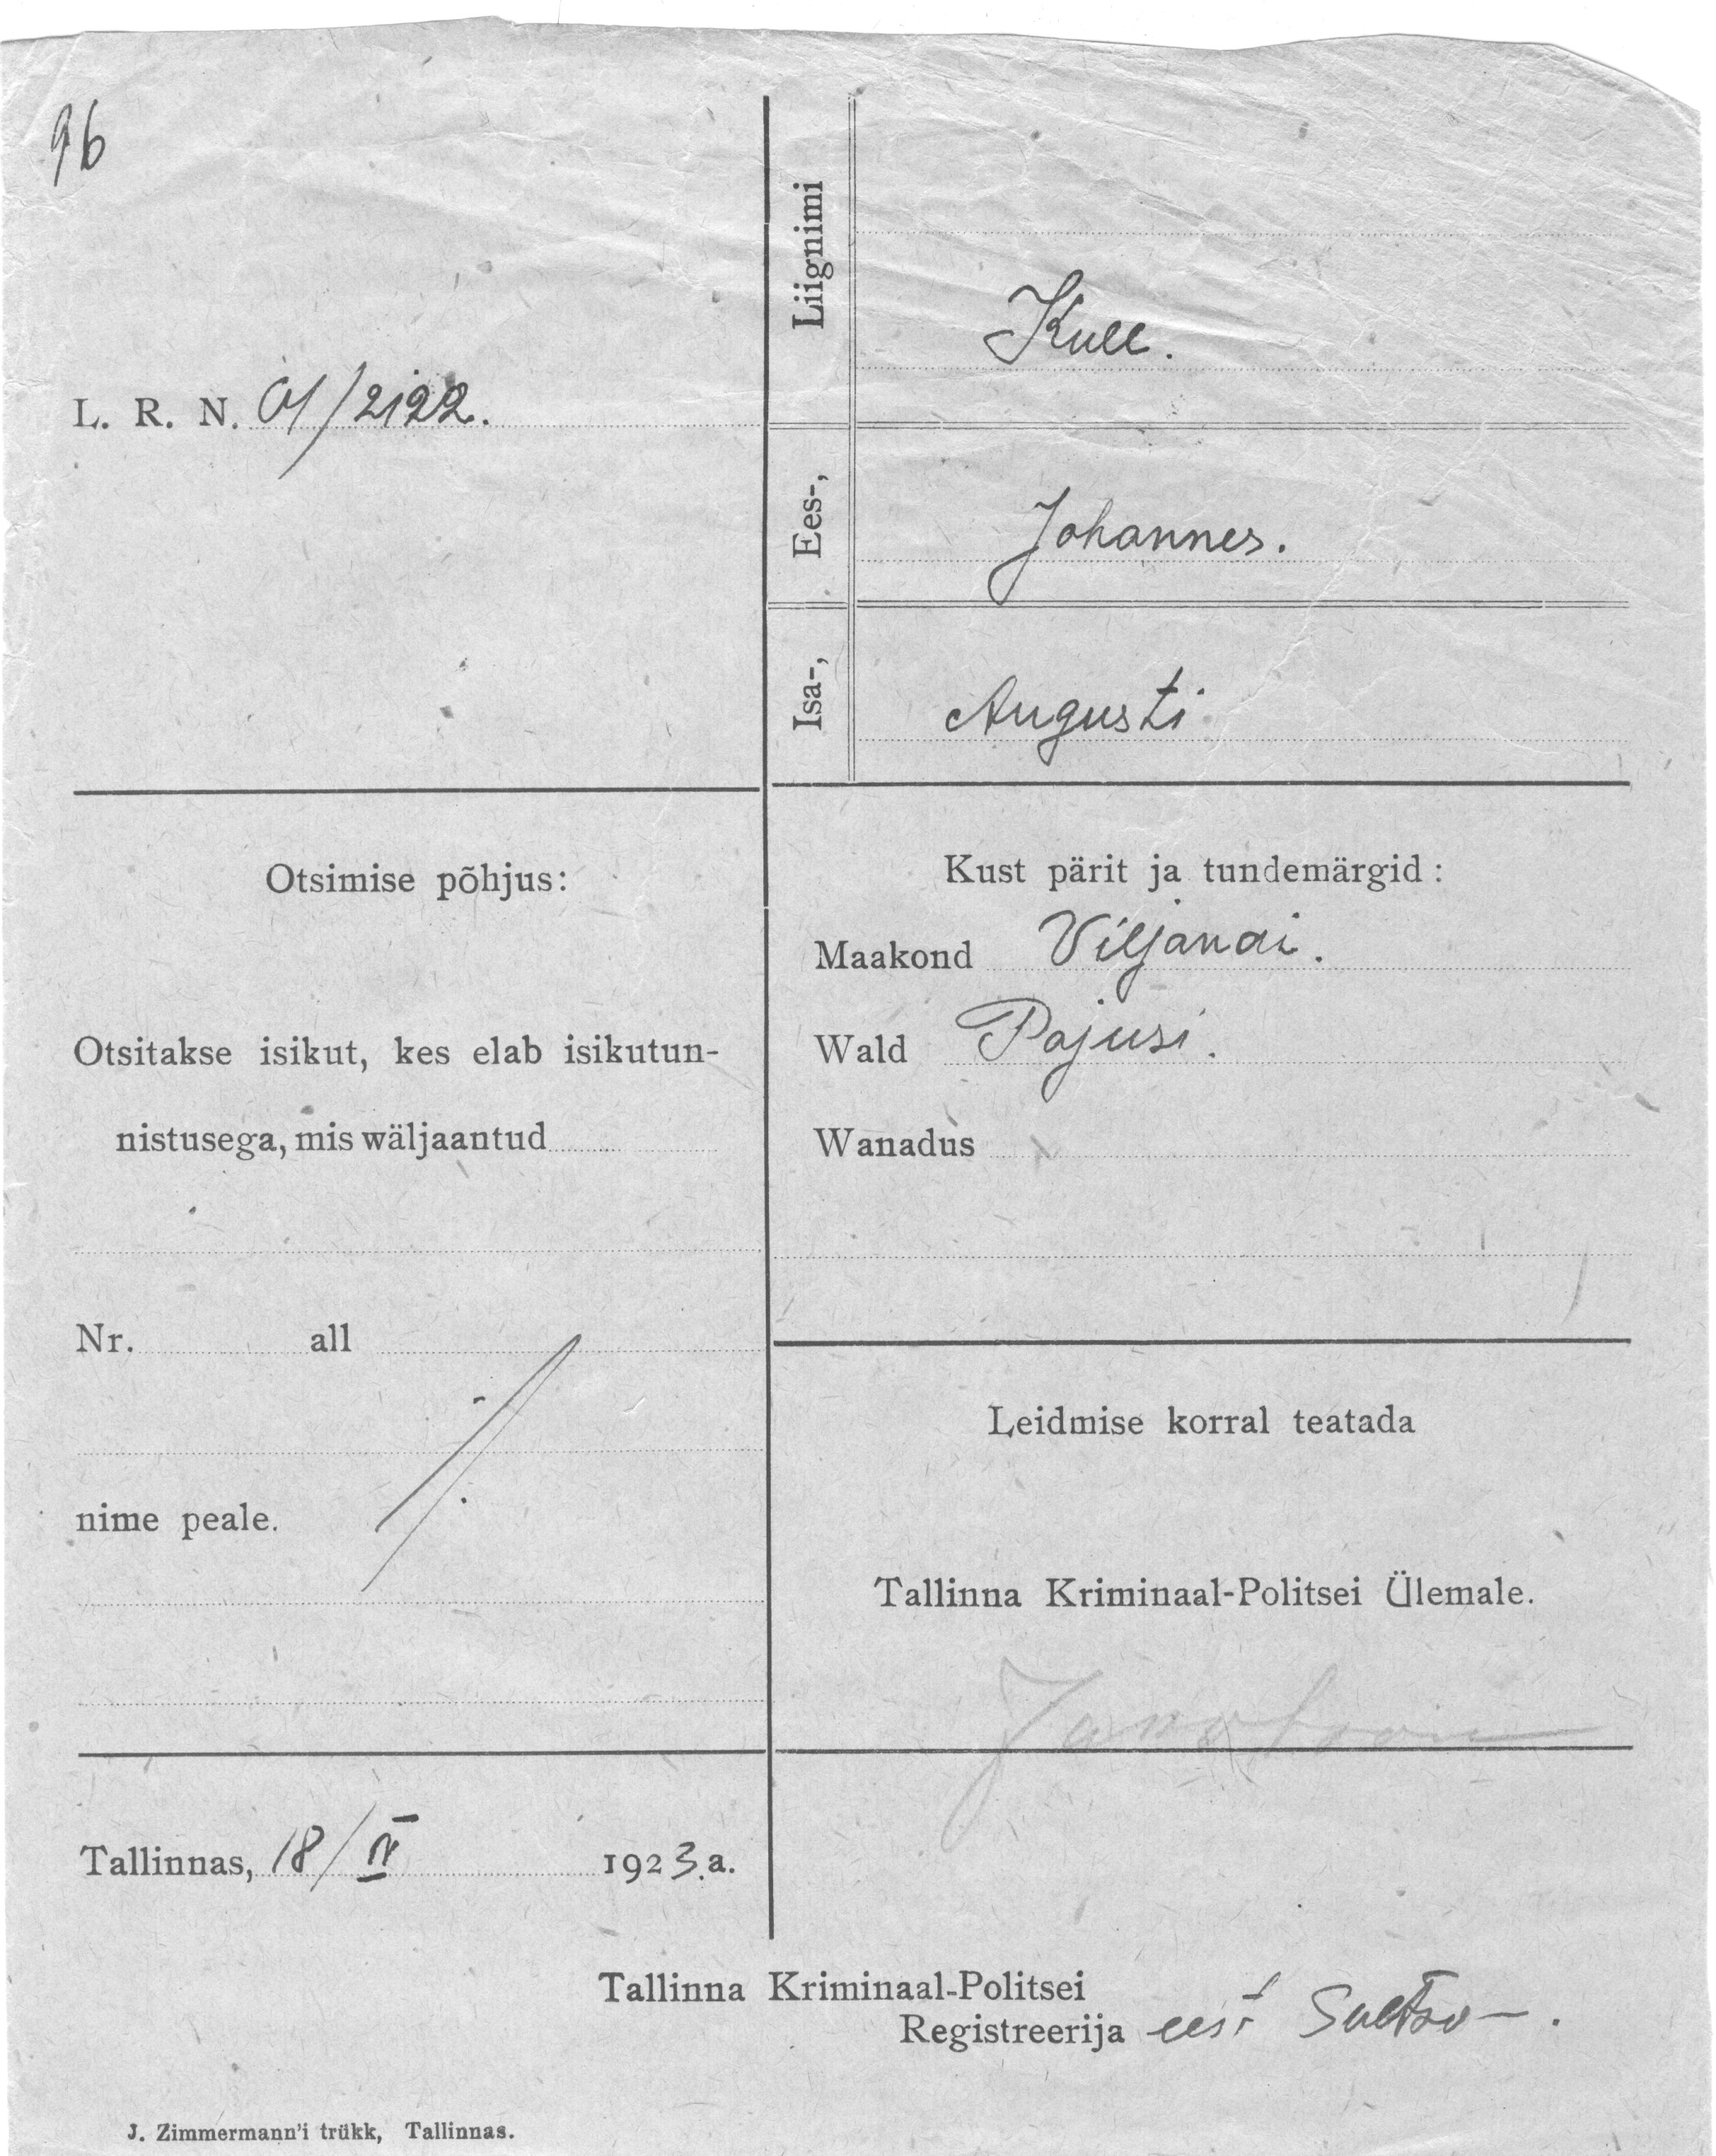 96
L. R. N. 01/2122.
Liignimi
Kull.
Ees-,
Johannes.
Isa-,
Augusti
Otsimise põhjus:
Otsitakse isikut, kes elab isikutun-
nistusega, mis wäljaantud
Nr. all
nime peale.
Kust pärit ja tundemärgid:
Maakond Viljandi.
Wald Pajusi.
Wanadus
Leidmise korral teatada
Tallinna Kriminaal-Politsei Ülemale.
Tallinnas, 18/IV 1923.a.
Tallinna Kriminaal-Politsei
Registreerija eest
J. Zimmermann'i trükk, Tallinnas.